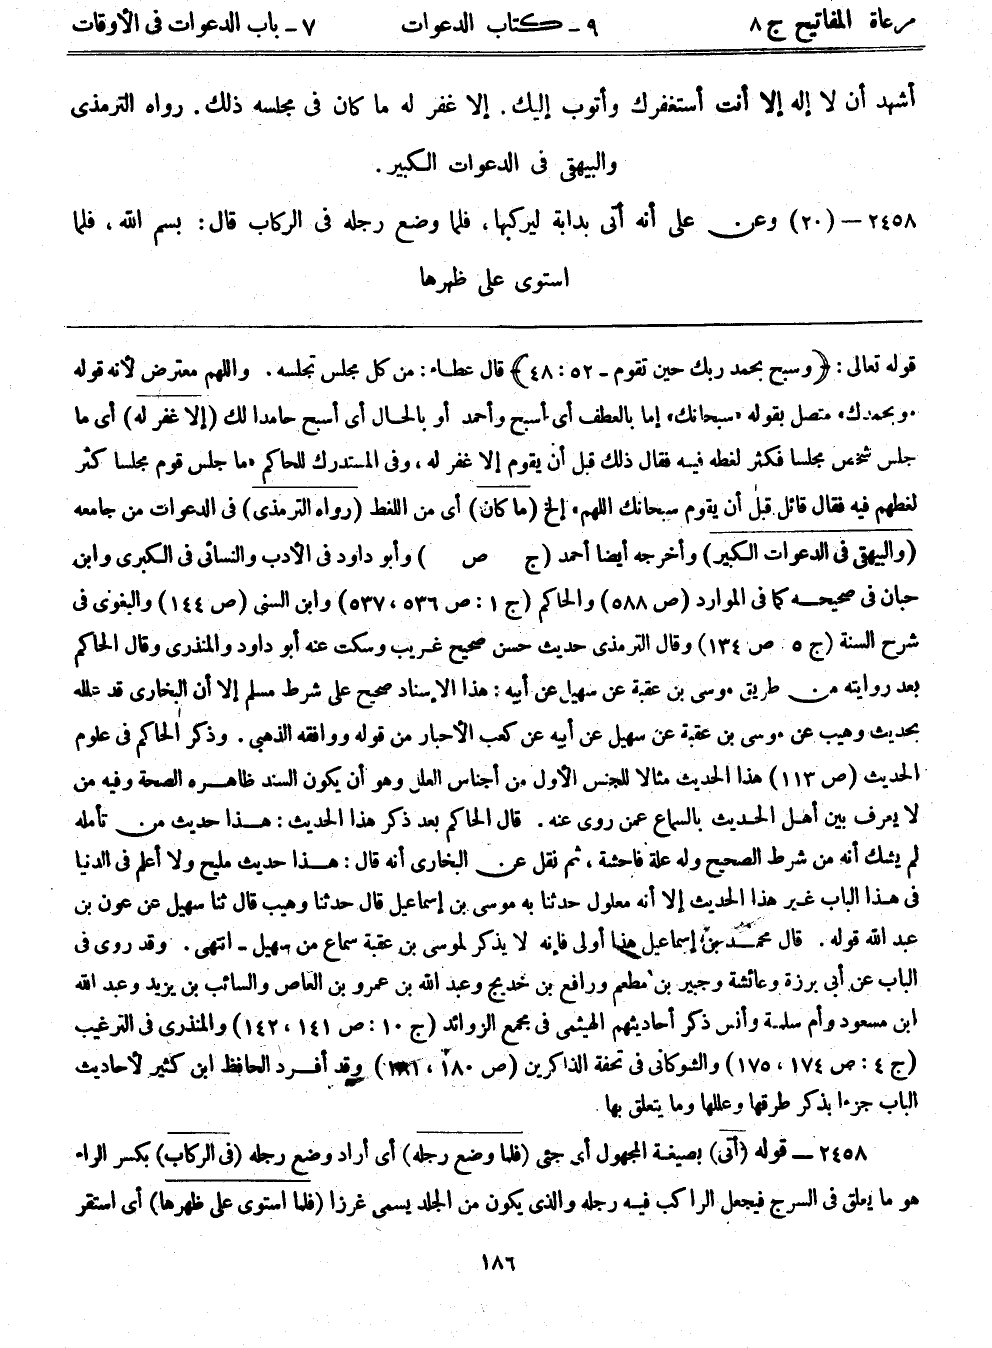 مرعاة المفاتيح ج ٨ ٩ ـ كتاب الدعوات ٧ ـ باب الدعوات فى الأوقات
أشهد أن لا إله إلا أنت أستغفرك وأتوب إليك. إلا غفر له ما كان فى مجلسه ذلك. رواه الترمذى
والبيهقى فى الدعوات الكبير.
٢٤٥٨ – (٢٠) وعن على أنه أتى بدابة ليركبها، فلما وضع رجله فى الركاب قال: بسم الله، فلما
استوى على ظهرها
قوله تعالى: ﴿وسبح بحمد ربك حين تقوم ـ ٥٢: ٤٨﴾ قال عطاء: من كل مجلس تجلسه. واللهم معترض لأنه قوله
«وبحمدك» متصل بقوله «سبحانك» إما بالعطف أى أسبح وأحمد أو بالحال أى أسبح حامدا لك (إلا غفر له) أى ما
جلس شخص مجلسا فكثر لغطه فيه فقال ذلك قبل أن يقوم إلا غفر له، وفى المستدرك للحاكم «ما جلس قوم مجلسا كثر
لغطهم فيه فقال قائل قبل أن يقوم سبحانك اللهم» إلخ (ما كان) أى من اللغط (رواه الترمذى) فى الدعوات من جامعه
(والبيهقى فى الدعوات الكبير) وأخرجه أيضا أحمد (ج ص ) وأبو داود فى الأدب والنسائى فى الكبرى وابن
حبان فى صحيحه كما فى الموارد (ص ٥٨٨) والحاكم (ج ١: ص ٥٣٦، ٥٣٧) وابن السنى (ص ١٤٤) والبغوى فى
شرح السنة (ج ٥ ص ١٣٤) وقال الترمذى حديث حسن صحيح غريب وسكت عنه أبو داود والمنذرى وقال الحاكم
بعد روايته من طريق موسى بن عقبة عن سهيل عن أبيه: هذا الإسناد صحيح على شرط مسلم إلا أن البخارى قد علله
بحديث وهيب عن موسى بن عقبة عن سهيل عن أبيه عن كعب الأحبار من قوله ووافقه الذهبى. وذكر الحاكم فى علوم
الحديث (ص ١١٣) هذا الحديث مثالا للجنس الأول من أجناس العلل وهو أن يكون السند ظاهره الصحة وفيه من
لا يعرف بين أهل الحديث بالسماع عمن روى عنه. قال الحاكم بعد ذكر هذا الحديث: هذا حديث من تأمله
لم يشك أنه من شرط الصحيح وله علة فاحشة، ثم نقل عن البخارى أنه قال: هذا حديث مليح ولا أعلم فى الدنيا
فى هذا الباب غير هذا الحديث إلا أنه معلول حدثنا به موسى بن إسماعيل قال حدثنا وهيب قال ثنا سهيل عن عون بن
عبد الله قوله. قال محمد بن إسماعيل هذا أولى فإنه لا يذكر لموسى بن عقبة سماع من سهيل ـ انتهى. وقد روى فى
الباب عن أبى برزة وعائشة وجبير بن مطعم ورافع بن خديج وعبد الله بن عمرو بن العاص والسائب بن يزيد وعبد الله
ابن مسعود وأم سلمة وأنس ذكر أحاديثهم الهيثمى فى مجمع الزوائد (ج ١٠: ص ١٤١، ١٤٢) والمنذرى فى الترغيب
(ج ٤: ص ١٧٤، ١٧٥) والشوكانى فى تحفة الذاكرين (ص ١٨٠، ) وقد أفرد الحافظ ابن كثير لأحاديث
الباب جزءا بذكر طرقها وعللها وما يتعلق بها.
٢٤٥٨ – قوله (أتى) بصيغة المجهول أى جئى (فلما وضع رجله) أى أراد وضع رجله (فى الركاب) بكسر الراء
هو ما يعلق فى السرج فيجعل الراكب فيه رجله والذى يكون من الجلد يسمى غرزا (فلما استوى على ظهرها) أى استقر
١٨٦